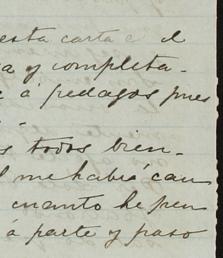 esta carta e el
a y completa-
e á pedazos pues
s todos bien-
l me había cau
cuanto he pen
á parte y paso